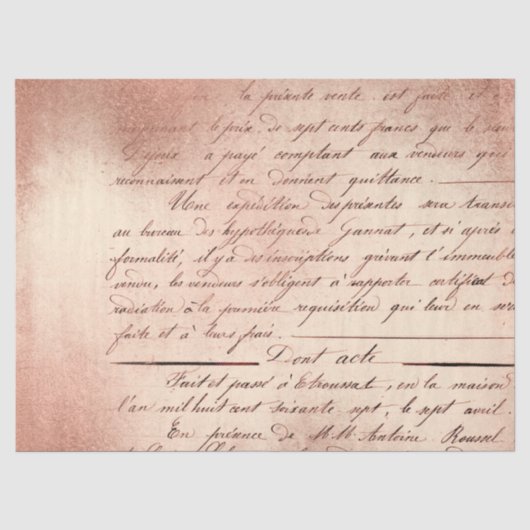 la présente vente est faite et
moyennant le prix de sept cents francs que le sieur
Dejoux a payé comptant aux vendeurs qui
reconnaissent et en donnent quittance.
Une expédition des présentes sera trans
au bureau des hypothèques de Gannat, et si après
formalité, il y a des inscriptions grèvant l'immeuble
vendu, les vendeurs s'obligent à rapporter certificat de
radiation à la première requisition qui leur en s
faite et à leurs frais.
Dont acte
Fait et passé à Etroussat, en la maison
l'an mil huit cent soixante-sept, le sept avril.
En présence de M.M. Antoine Roussel